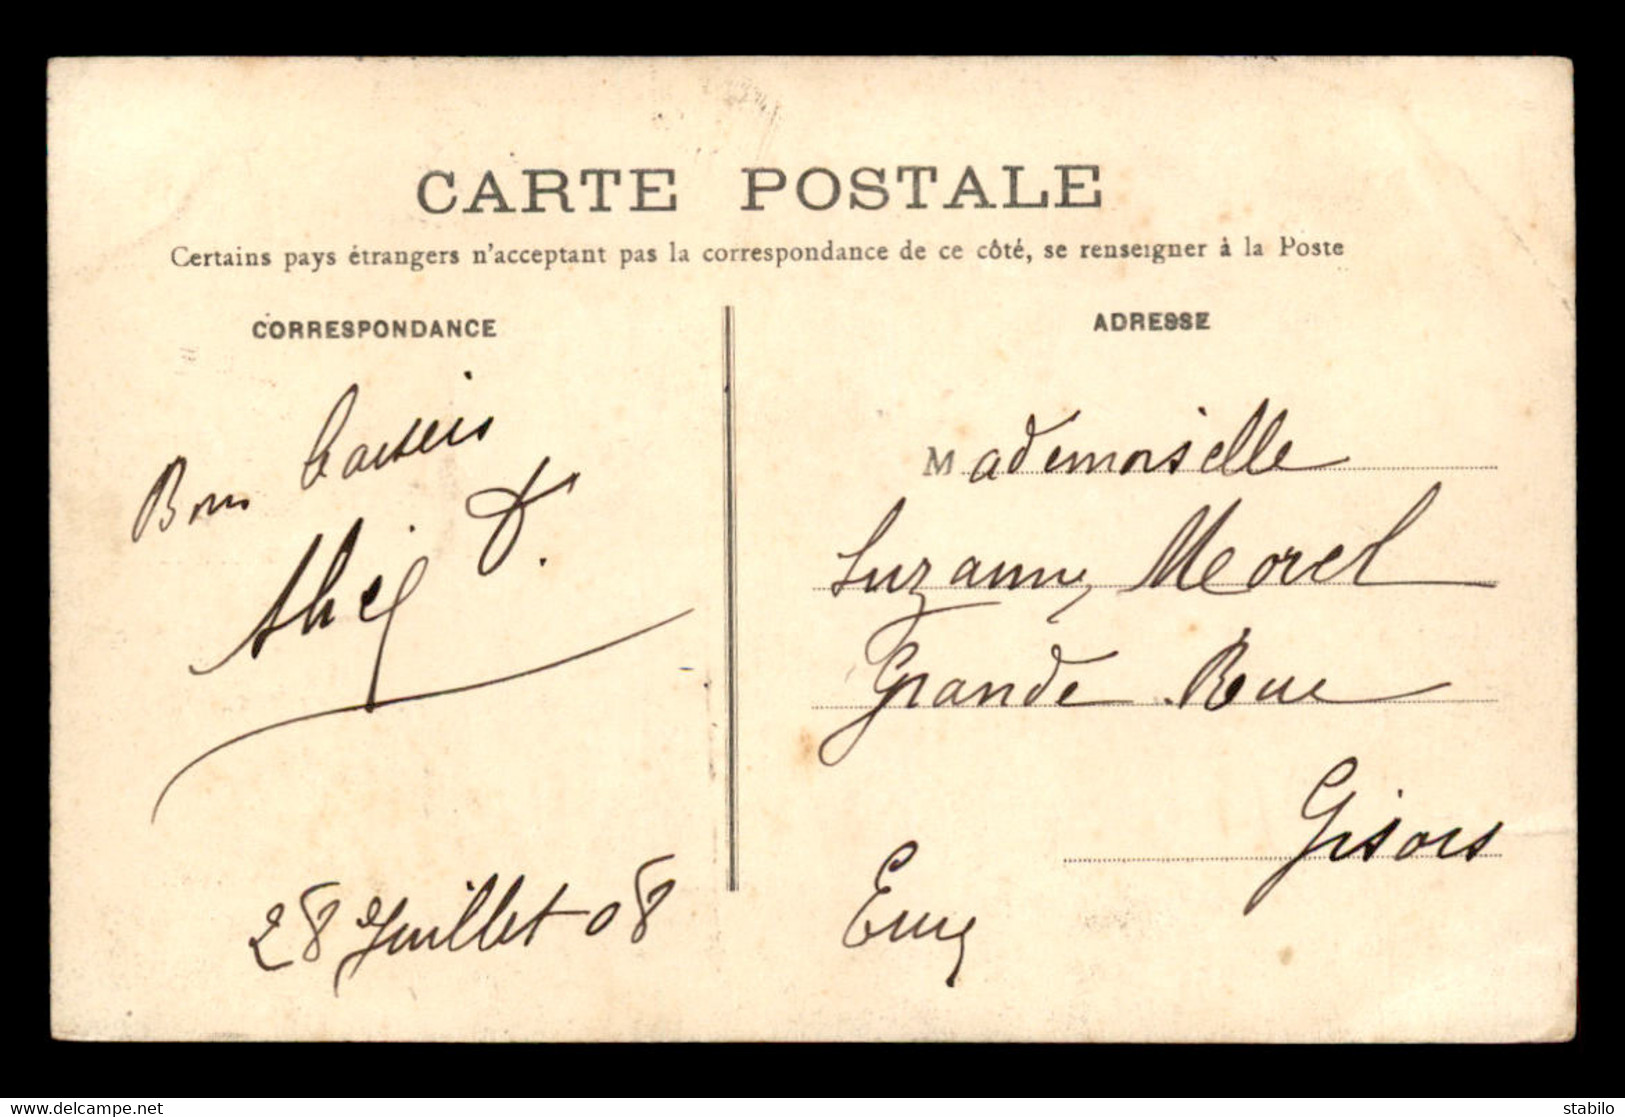 CARTE POSTALE
Certains pays étrangers n'acceptant pas la correspondance de ce côté, se renseigner à la Poste
CORRESPONDANCE
Bons baisers
28 Juillet 08
ADRESSE
Mademoiselle
Suzanne Morel
Grande Rue
Gisors
Eure
delcampe.net
stabilo